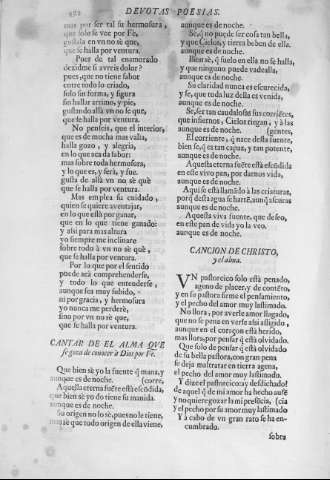 DEVOTAS POESIAS.
mas por ser tal su hermosura,
que solo se vee por Fè,
gustala en vn no sè que,
que se halla por ventura.
Pues de tal enamorado
dezidme si avreis dolor?
pues, que no tiene sabor
entre todo lo criado,
solo sin forma, y figura
sin hallar arrimo, y pie,
gustando allà vn no sè que,
que se halla por ventura.
No penseis, que el interior,
que es de mucha mas valìa,
halla gozo, y alegria,
en lo que acà da labor:
mas sobre toda hermosura,
y lo que es, y serà, y fue,
gusta de allà vn no sè què
que se halla por ventura.
Mas emplea su cuidado,
quien se quiere aventajar,
en lo que està por ganar,
que en lo que tiene ganado:
y assi para mas altura
yo siempre me inclinare
sobre todo à vn no sè quê,
que se halla por ventura.
Por lo que por el sentido
puede acà comprehenderse,
y todo lo que entenderse,
aunque sea muy subido,
ni por gracia, y hermosura
yo nunca me perderè,
sino por vn no sè que,
que se halla por ventura.
CANTAR DE EL ALMA QVE
se goza de conocer à Dios por Fè.
Que bien sè yo la fuente q̃ mana, y
aunque es de noche. (corre,
Aquesta eterna fuẽte està escõdida,
que bien sè yo do tiene su manida
aunque es de noche.
Su origen no lo sè, pues no le tiene,
mas sè que todo origen de ella viene,
aunque es de noche.
Sè, q̃ no puede ser cosa tan bella,
y que Cielos, y tierra beben de ella.
aunque es de noche.
Bien sè, q̃ suelo en ella no se halla,
y que ninguno puede vadealla,
aunque es de noche.
Su claridad nunca es escurecida,
y sè, que toda luz della es venida,
aunque es de noche.
Sè, ser tan caudalosas sus corriẽtes,
que infiernos, Cielos riegan, y à las
aunque es de noche. (gentes,
El corriente, q̃ nace desta fuente,
bien sè, q̃ es tan capaz, y tan potente,
aunque es de noche.
Aquesta eterna fuẽte està escõdida
en este vivo pan, por darnos vida,
aunque es de noche.
Aqui se està llamãdo à las criaturas,
porq̃ desta agua se hartẽ, aunq̃ à scuras
aunque es de noche.
Aquesta viva fuente, que deseo,
en este pan de vida yo la veo.
aunque es de noche.
CANCION DE CHRISTO,
y el alma.
VN pastorcico solo està penado,
ageno de placer, y de contẽto,
y en su pastora firme el pensamiento,
y el pecho del amor muy lastimado.
No llora, por averle amor llagado,
que no se pena en verse assi afligido,
aunque en el coraçon està herido,
mas llora, por pensar q̃ està olvidado
Que solo de pensar q̃ està olvidado
de su bella pastora, con gran pena
se deja maltratar en tierra agena,
el pecho del amor muy lastimado
Y dize el pastorcico: ay desdichado!
de aquel q̃ de mi amor ha hecho ausẽ
y no quiere gozar la mi presẽcia, (cia
y el pecho por su amor muy lastimado
Y à cabo de vn gran rato se ha en-
cumbrado.
sobre